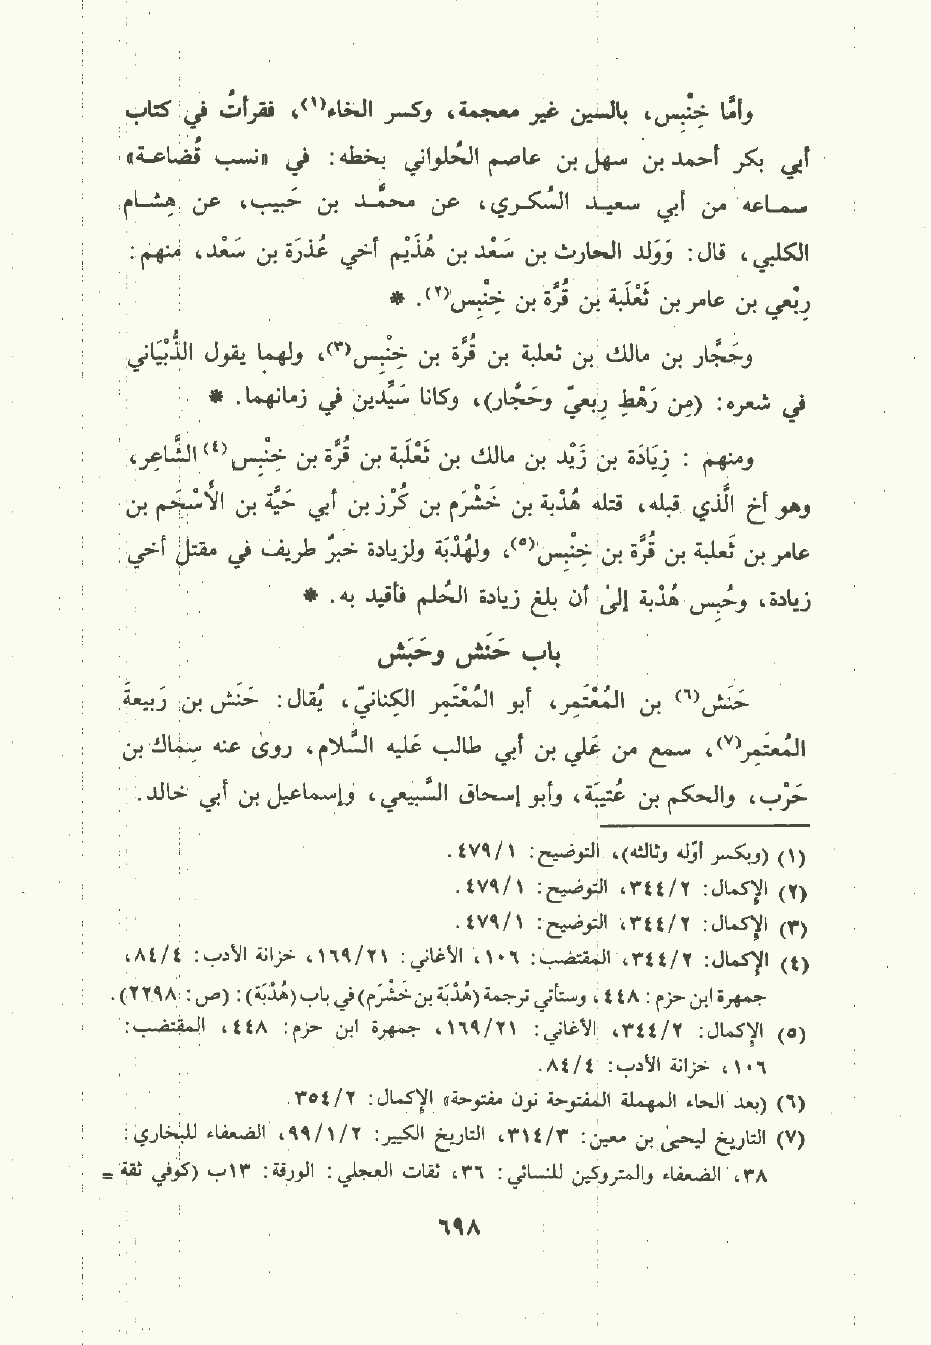 وأمَّا خِنْبِس، بالسين غير معجمة، وكسر الخاء(١)، فقرأتُ في كتاب
أبي بكر أحمد بن سهل بن عاصم الحُلواني بخطه: في «نسب قُضاعة»
سماعه من أبي سعيد السُكري، عن محمَّد بن حَبيب، عن هِشام
الكلبي، قال: وَوَلد الحارث بن سَعْد بن هُذَيْم أخي عُذرَة بن سَعْد، منهم:
رِبْعي بن عامر بن ثَعْلَبة بن قُرَّة بن خِنْبِس(٢). *
وحَجَّار بن مالك بن ثعلبة بن قُرَّة بن خِنْبِس(٣)، ولهما يقول الذُّبْيَاني
في شعره: (مِن رَهْطِ رِبعيّ وحَجَّار)، وكانا سَيِّدين في زمانهما. *
ومنهم : زِيَادَة بن زَيْد بن مالك بن ثَعْلَبة بن قُرَّة بن خِنْبِس(٤) الشَّاعِر،
وهو أخ الَّذي قبله، قتله هُدْبة بن خَشْرَم بن كُرْز بن أبي حَيَّة بن الأَسْحَم بن
عامر بن ثَعلبة بن قُرَّة بن خِنْبِس(٥)، ولهُدْبَة ولزيادة خبرٌ طريف في مقتل أخي
زيادة، وحُبِس هُدْبة إلىٰ أن بلغ زيادة الحُلم فأقيد به. *
باب حَنَش وحَبَش
حَنَش(٦) بن المُعْتَمِر، أبو المُعْتَمِر الكِنانيّ، يُقال: حَنَش بن رَبيعةَ
المُعتَمِر(٧)، سمع من عَلي بن أبي طالب عَليه السَّلام، روىٰ عنه سِمَاك بن
حَرْب، والحكم بن عُتيبَة، وأبو إسحاق السَّبيعي، وإسماعيل بن أبي خالد.
(١) (وبكسر أوّله وثالثه)، التوضيح: ٤٧٩/١.
(٢) الإكمال: ٣٤٤/٢، التوضيح: ٤٧٩/١.
(٣) الإكمال: ٣٤٤/٢، التوضيح: ٤٧٩/١.
(٤) الإكمال: ٣٤٤/٢، المقتضب: ١٠٦، الأغاني: ١٦٩/٢١، خزانة الأدب: ٨٤/٤،
جمهرة ابن حزم: ٤٤٨، وستأتي ترجمة (هُدْبَة بن خَشْرَم) في باب (هُدْبَة): (ص: ٢٢٩٨).
(٥) الإكمال: ٣٤٤/٢، الأغاني: ١٦٩/٢١، جمهرة ابن حزم: ٤٤٨، المقتضب:
١٠٦، خزانة الأدب: ٨٤/٤.
(٦) (بعد الحاء المهملة المفتوحة نون مفتوحة» الإكمال: ٣٥٤/٢.
(٧) التاريخ ليحيىٰ بن معين: ٣١٤/٣، التاريخ الكبير: ٩٩/١/٢، الضعفاء للبخاري:
٣٨، الضعفاء والمتروكين للنسائي: ٣٦، ثقات العجلي: الورقة: ١٣ب (كوفي ثقة =
٦٩٨